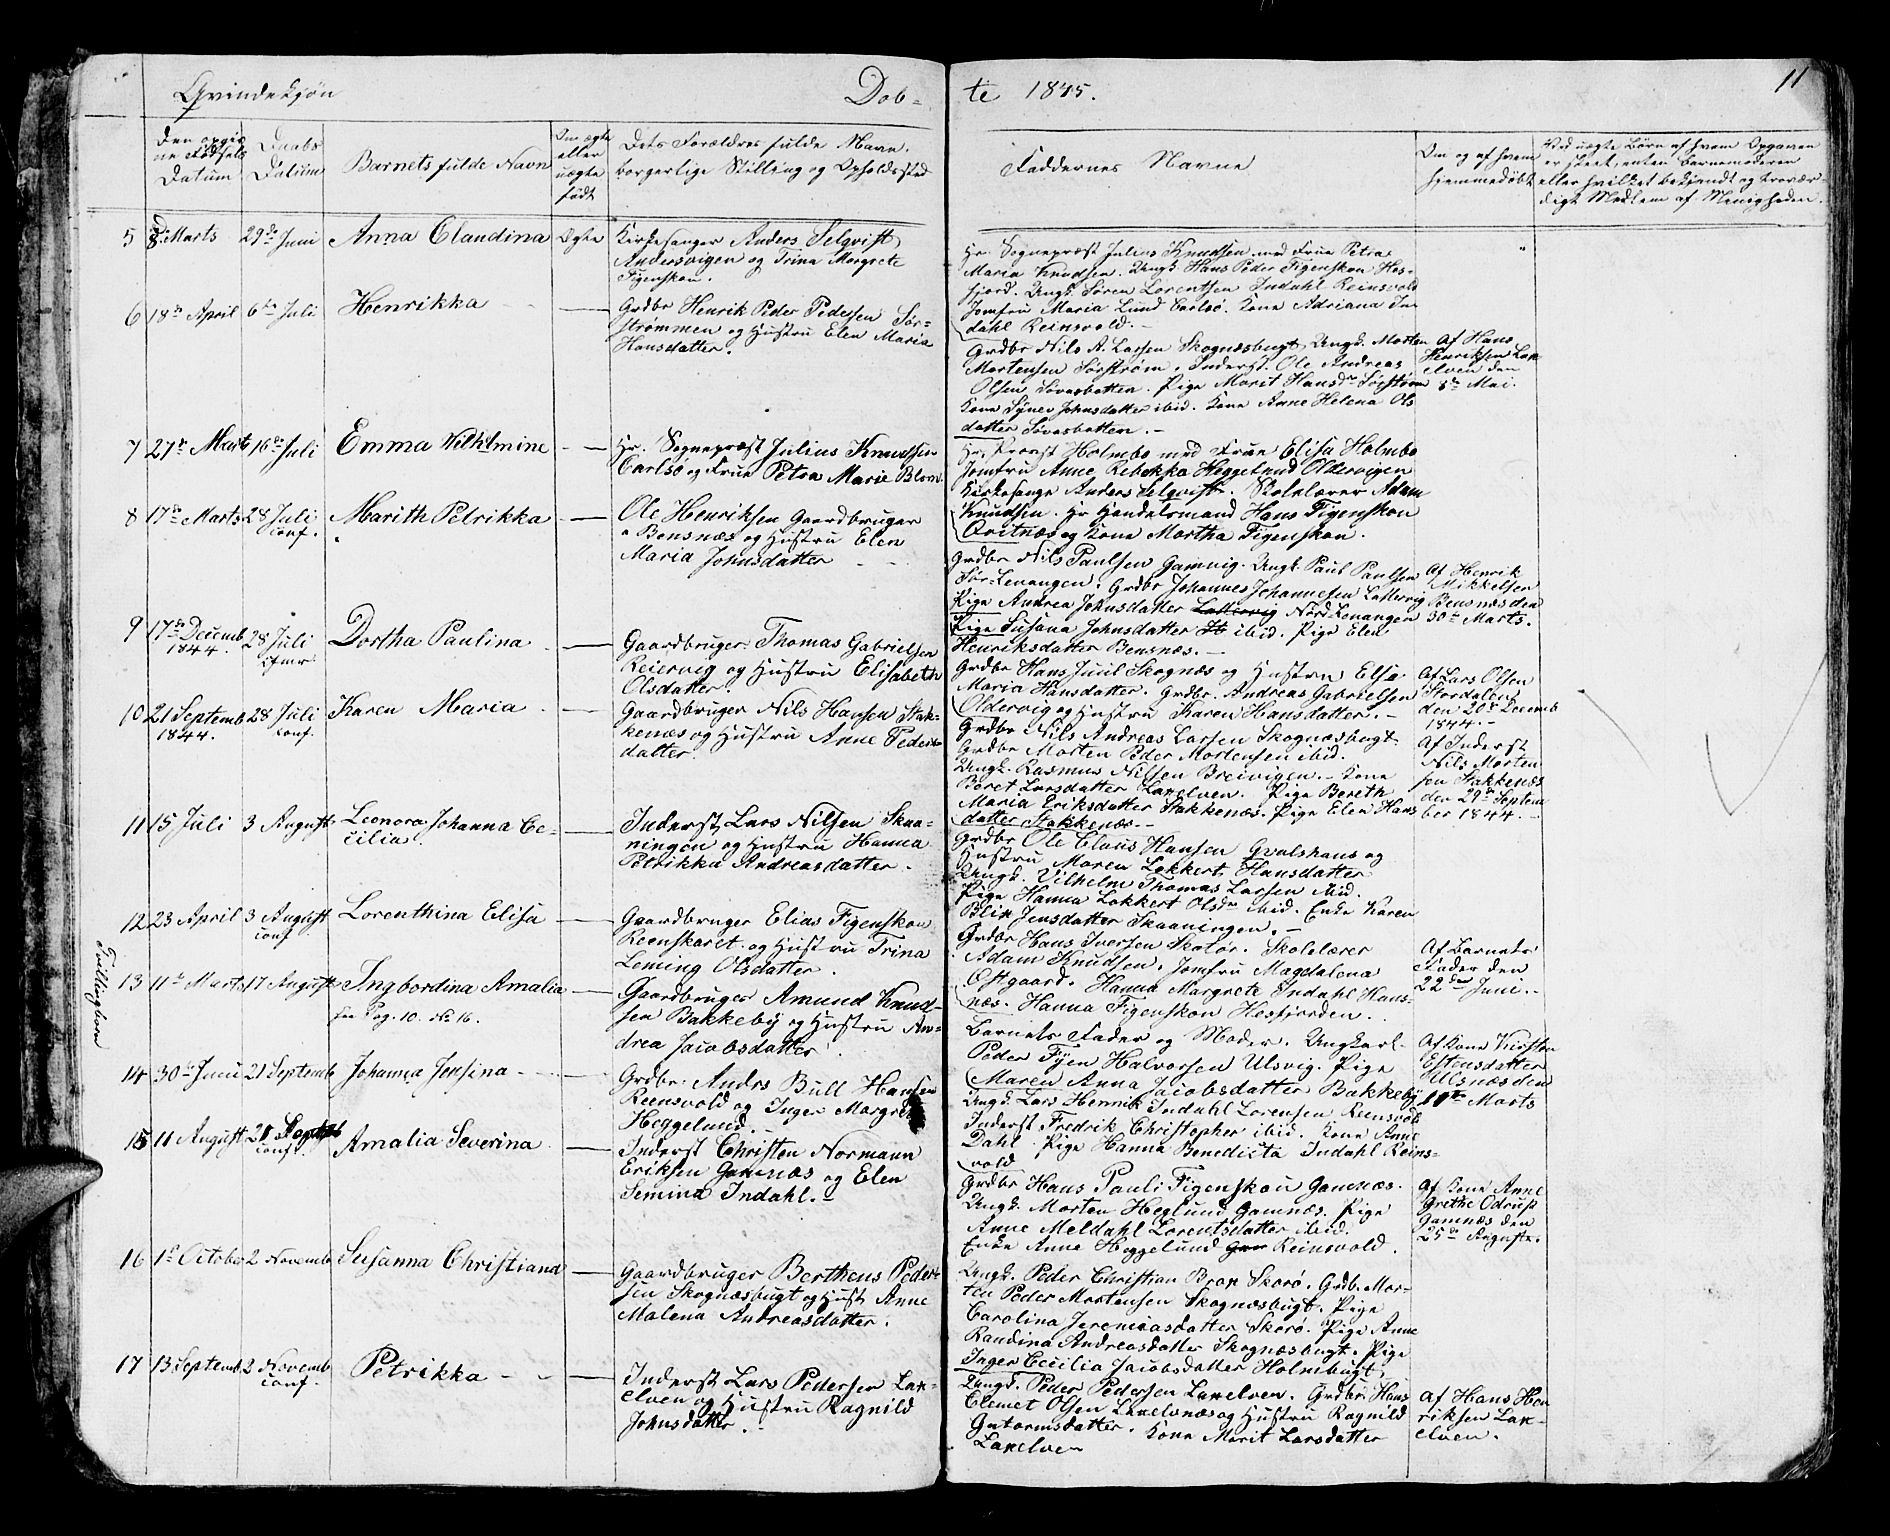 Qvindekjøn Dob- te 1845. 11
Den opgiv
ne Fødsels
Datum
Daabs
Datum
Barnets fulde Navn
Om ægte
eller
uægte
født
Dets Forældres fulde Navn.
borgerlige Stilling og Opholdssted
Faddernes Navne
Om og af hvem
hjemmedøbt
Ved uægte Børn af hvem Opgaven
er skeet, enten barnemoderen
eller hvilket bekjendt og trovær-
digt Medlem af Menigheden.
5 8de Marts 29de Juni Anna Claudina Ægte
Kirkesanger Anders Selqvist
Andersvigen og Trina Margrete
Figenskou.
Hr. Sognepræst Julius Knudsen med Frue Petra
Maria Knudsen. Ungk. Hans Peder Figenskou Hes-
fjord. Ungk. Søren Lorentsen Indahl Reinsvold
Jomfru Maria Lund Carlsø. Kone Adriana In
dahl Reinsvold.-
6 18de April 6te Juli Henrikka
Grdbr Henrik Peder Pedersen Sør-
strømmen og Hustru Elen Maria
Hansdatter.
Grdbr Nils A. Larsen Skognæsbugt, Ungk. Morten
Mortensen Sørstrøm. Inderst. Ole Andreas
Olsen Sørasbotten. Pige Marit Hansdr Sørstrøm
Kone Syner Johnsdatter ibid. Kone Anne Helena Ols
datter Sørasbotten.-
Af Hans
Henriksen Lax
elven den
8de Mai.
7 27de Marts 16de Juli Emma Vilhelmine
Hr. Sognepræst Julius Knudsen
Carlsø og Frue Petra Marie Blom.
Hr. Provst Holmbo med Frue Elisa Holmbo
Jomfru Anne Rebekka Heggelund Oldervigen
Kirkesanger Anders Selqvist. Skolelærer Adam
Knudsen. Hr Handelsmand Hans Figenskou
Qvitnæs og Kone Martha Figenskou.
8 17de Marts 28 Juli
conf. Marith Petrikka
Ole Henriksen Gaardbruger
Bensnæs og Hustru Elen
Maria Johnsdatter
Grdbr Nils Paulsen Gamvig. Ungk. Paul Paulsen
Sør-Lenangen. Grdbr Johannes Johannesen Lattervig
Pige Andrea Johnsdatter Lattervig Nord Lenangen
Pige Susana Johnsdatter ibid. Pige Elen
Henriksdatter Bensnæs.-
Af Henrik
Mikkelsen
Bensnæs den
30te Marts.
9 17de Decemb
1844. 28 Juli
Dortha Paulina
Gaardbruger Thomas Gabrielsen
Reiervig og Hustru Elisabeth
Olsdatter.
Grdbr Hans Juul Skognæs og Hustru Elsa
Maria Hansdatter. Grdbr. Andreas Gabrielsen
Oldervig og Hustru Karen Hansdatter.-
Af Lars Olsen
Stordalen
den 20de Decemb
1844.-
10 21 Septemb
1844. 28 Juli
conf. Karen Maria
Gaardbruger Nils Hansen Stak-
kenæs og Hustru Anne Peders
datter.
Grdbr Nils Andreas Larsen Skognæsbugt.
Grdbr Morten Peder Mortensen ibid.
Ungk. Rasmus Nilsen Breivigen.- Kone
Beret Larsdatter Laxelven. Pige Bereth
Maria Eriksdatter Stakkenæs. Pige Elen Hans
datter Stakkenæs.-
Af Inderst
Nils Morten
sen Stakkenæs
den 29de Septem
ber 1844.
11 15 Juli 3 August Leonora Johanna Ce-
cilia.
Inderst Lars Nilsen Skaa-
ningen og Hustru Hanna
Petrikka Andreasdatter.
Grdbr Ole Claus Hansen Qvalshaus og
Hustru Maren Lokkert Hansdatter
Ungk. Vilhelm Thomas Larsen ibid.
Pige Hanna Lokkert Olsdr ibid. Enke Karen
Blix Jensdatter Skaaningen.-
12 23 April 3 August
conf Lorenthina Elisa
Gaardbruger Elias Figenskou
Reenskaret og Hustru Trina
Leming Olsdatter.
Grdbr Hans Iversen Skatør. Skolelærer
Adam Knudsen. Jomfru Magdalena
Ostgaard. Hanna Margrete Indahl Hans-
næs. Hanna Figenskou Hesfjorden.
Af Barnets
Fader den
22den Juni.-
Tvillingbørn
13 11te Marts 17 August Ingbordina Amalia
see Pag. 10. No 16.
Gaardbruger Amund Knud-
sen Bakkeby og Hustru An-
drea Jacobsdatter.
Barnets Fader og Moder. Ungkarl
Peder Fyen Halvorsen Ulsvig. Pige
Maren Anna Jacobsdatter Bakkeby
Af Kone Kirsten
Estensdatter
Ulsnæs den
11te Marts
14 30te Juni 21 Septemb Johanna Jensina
Grdbr. Andrs Bull Hansen
Reensvold og Inger Margrete
Heggelund.
Ungk. Lars Henrik Indahl Lorensen Reensvold
Inderst Fredrik Christopher ibid. Kone Anne
Dahl. Pige Hanna Benedicta Indahl Reins-
vold
15 11 August 21 Septb
conf. Amalia Severina
Inderst Christen Normann
Eriksen Gamnæs og Elen
Semina Indahl.-
Grdbr Hans Pauli Figenskou Gamnæs.
Ungk. Morten Heglund Gamnæs. Pige
Anne Meldahl Lorentsdatter ibid.
Enke Anne Heggelund Reinsvold.
Af Kone Anne
Grethe Odrup
Gamnæs den
25de Auguste.
16 1ste October 2 Novemb Susanna Christiana
Gaardbruger Bertheus Peder-
sen Skognæsbugt og Hust. Anne
Malena Andreasdatter.
Ungk. Peder Christian Brox Skorø. Grdb. Mor-
ten Peder Mortensen Skognæsbugt. Pige
Carolina Jeremiasdatter Skorø. Pige Anne
Randina Andreasdatter Skognæsbugt. Pige
Inger Cecilia Jacobsdatter Holmbugt.
17 13 Septemb. 2 Novemb
conf. Petrikka
Inderst Lars Pedersen Lax-
elven og Hustru Ragnild
Johnsdatter.-
Ungk. Peder Pedersen Laxelven. Grdbr Hans
Clemet Olsen Laxelvnæs og Hustru Ragnild
Gutormsdatter. Kone Marit Larsdatter
Laxelven
Af Hans Hen
riksen Lax-
elven.